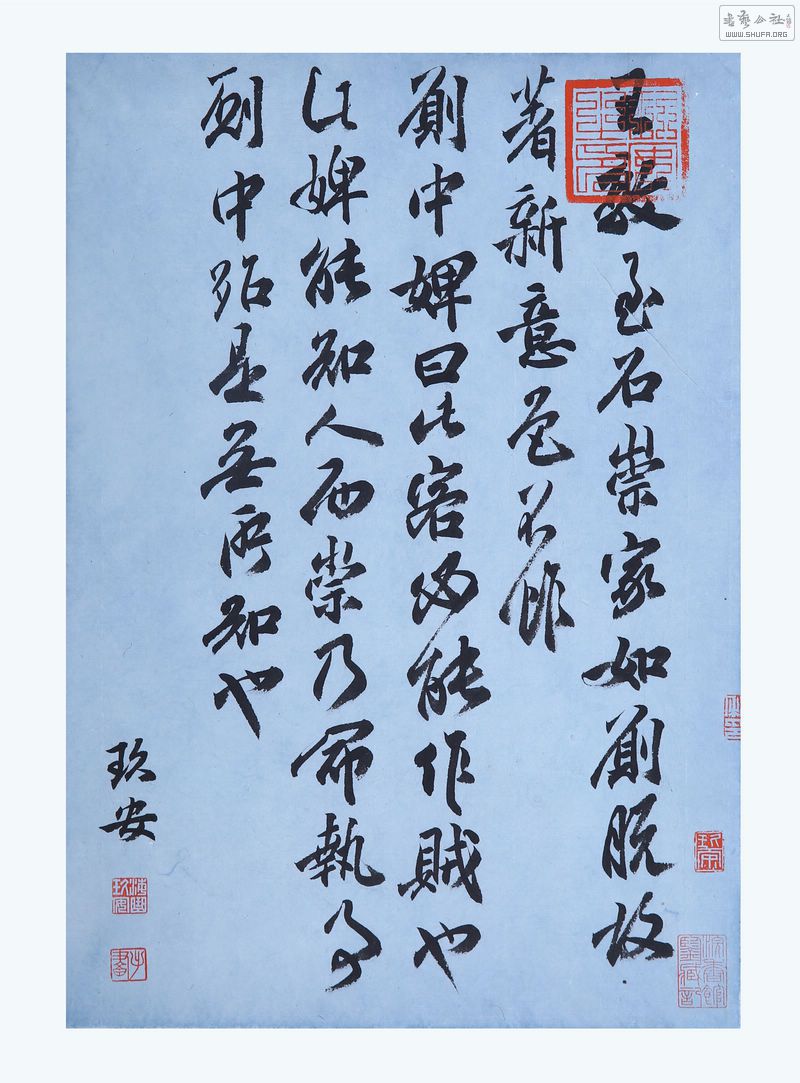 書藝公社
WWW.SHUFA.ORG
王敦至石崇家如廁脫故
著新意色不怍
廁中婢曰此客必能作賊也
此婢能知人而崇乃命執事
廁中殆是無所知也
玖安